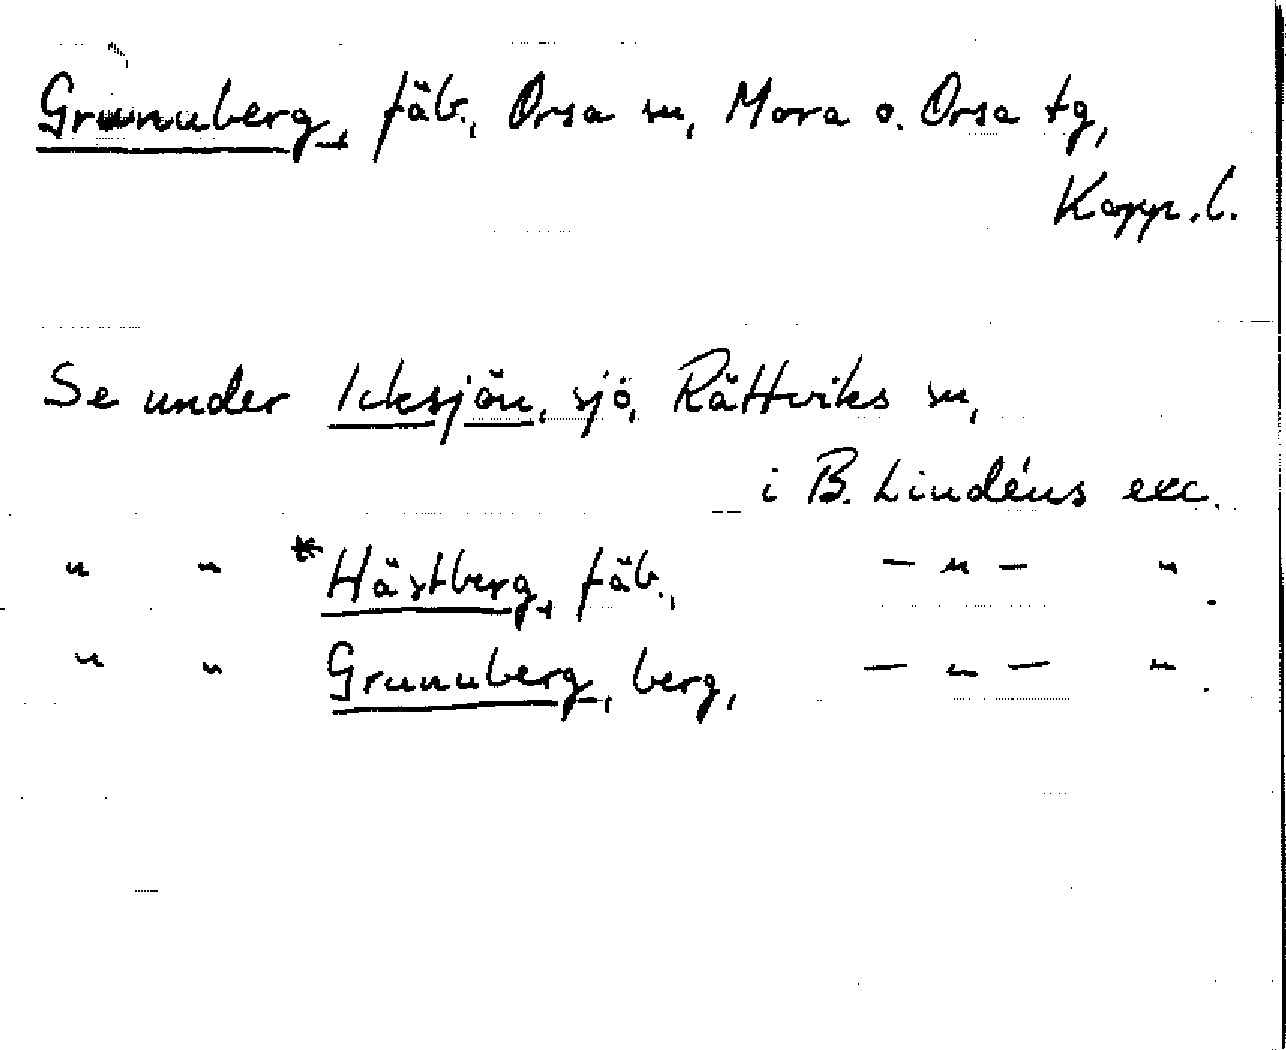 Grunnuberg, fäb., Orsa sn, Mora o. Orsa tg,
Kopp. l.
Se under Icksjön, sjö, Rättviks sn,
i B. Lindéns exc.
" " *Hästberg, fäb., — " — " .
" " Grunuberg, berg, — " — " .